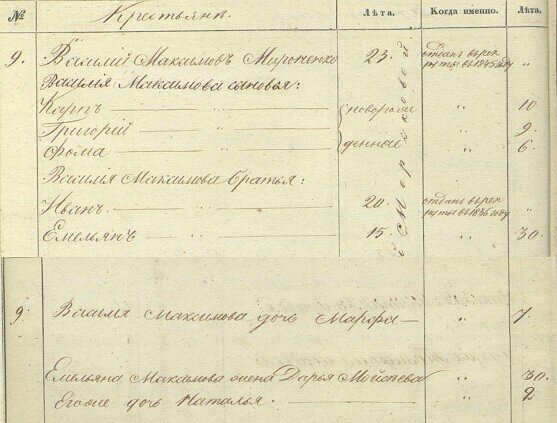 № Крестьянъ. Лѣта. Когда именно. Лѣта.
9. Василій Максимовъ Мироненко 23. отданъ въ рек
руты въ 1845 году "
Василія Максимова сыновья:
Карпъ новорож " 10
Григорій " " 9.
Фома денные " 6.
Василія Максимова братья:
Иванъ. 20. отданъ въ рек
руты въ 1836 году "
Емельянъ 15. " 30.
9. Василія Максимова дочь Марфа " 7.
Емельяна Максимова жена Дарья Мойсѣева " 30.
Его же дочь Наталья. " 2